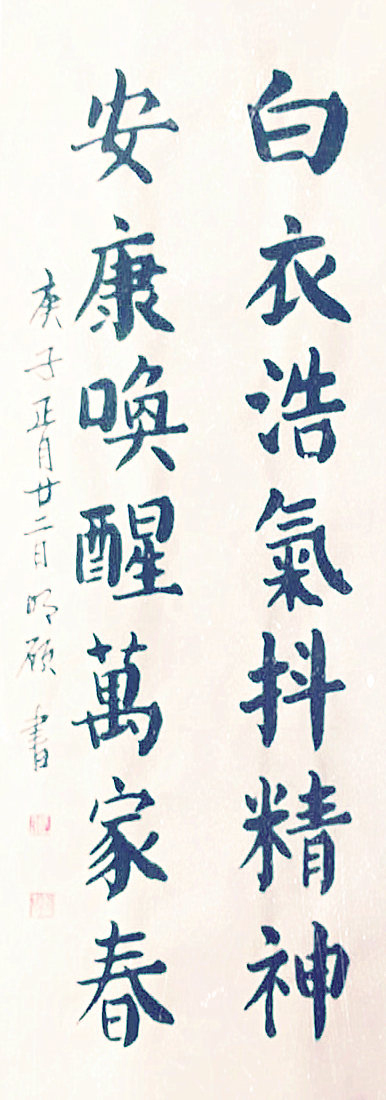 白衣浩氣抖精神
安康喚醒萬家春
庚子正月廿二日明願書